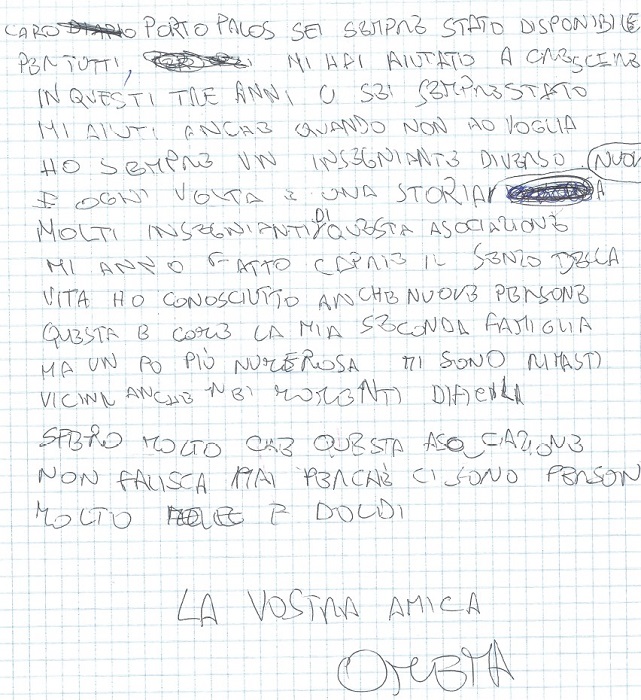 CARO DIARIO PORTO PALOS SEI SEMPRE STATO DISPONIBILE
PER TUTTI, MI HAI AIUTATO A CRESCERE
IN QUESTI TRE ANNI, O SEI SEMPRE STATO
MI AIUTI ANCHE QUANDO NON HO VOGLIA
HO SEMPRE UN INSEGNIANTE DIVERSO. (NUOV
E OGNI VOLTA E UNA STORIA A
MOLTI INSEGNIANTI DI QUESTA ASOCIAZIONE
MI ANNO FATTO CAPIRE IL SENZO DELLA
VITA HO CONOSCIUTTO ANCHE NUOVE PERSONE
QUESTA E COME LA MIA SECONDA FAMIGLIA
MA UN PO PIÙ NUMEROSA MI SONO RIMASTI
VICINI ANCHE NEI MOMENTI
SPERO MOLTO CHE QUESTA ASOCIAZIONE
NON FALISCA MAI PERCHÈ CI SONO PERSON
MOLTO E DOLDI
LA VOSTRA AMICA